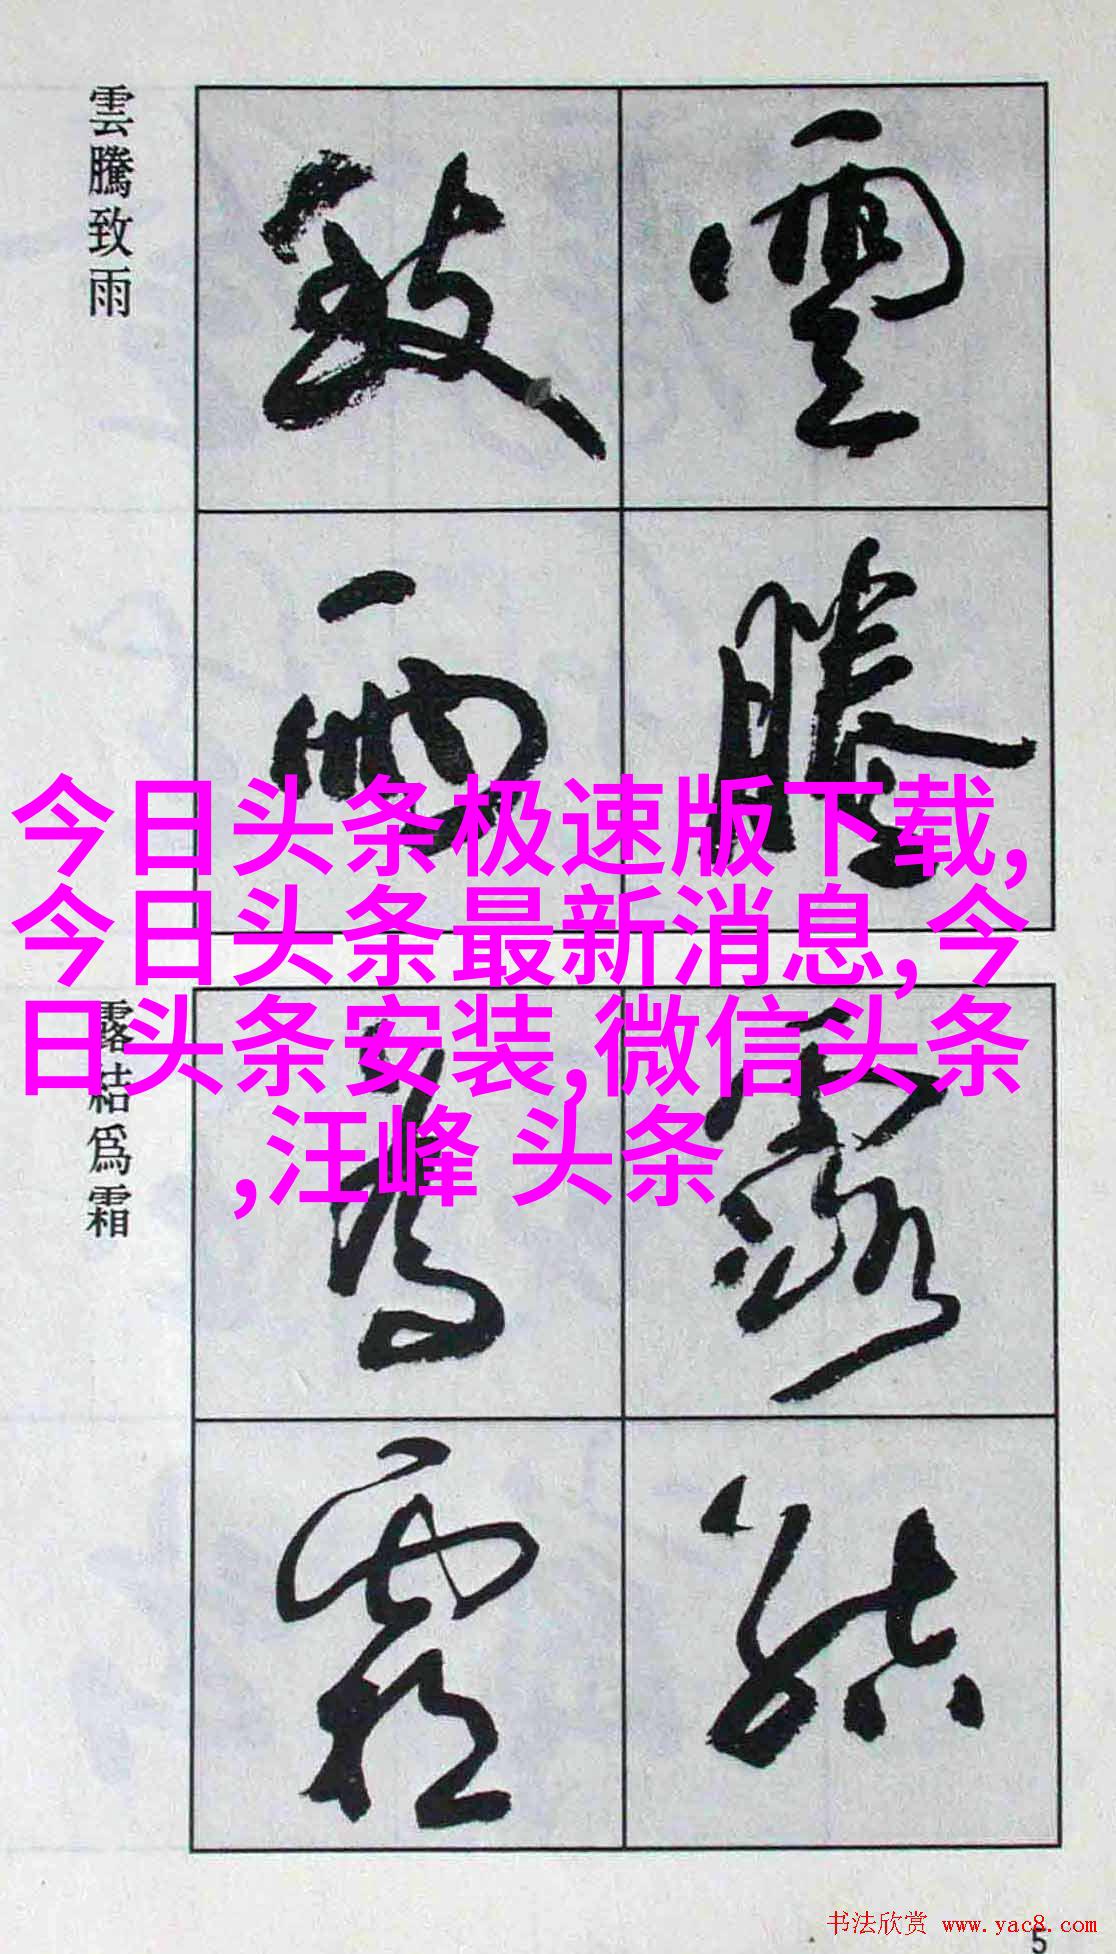 雲騰致雨
雲騰
致雨
今日头条极速版下载,
今日头条最新消息,今
日头条安装,微信头条
,汪峰 头条
露結爲霜
露結
爲霜
书法欣赏 www.yac8.com
5